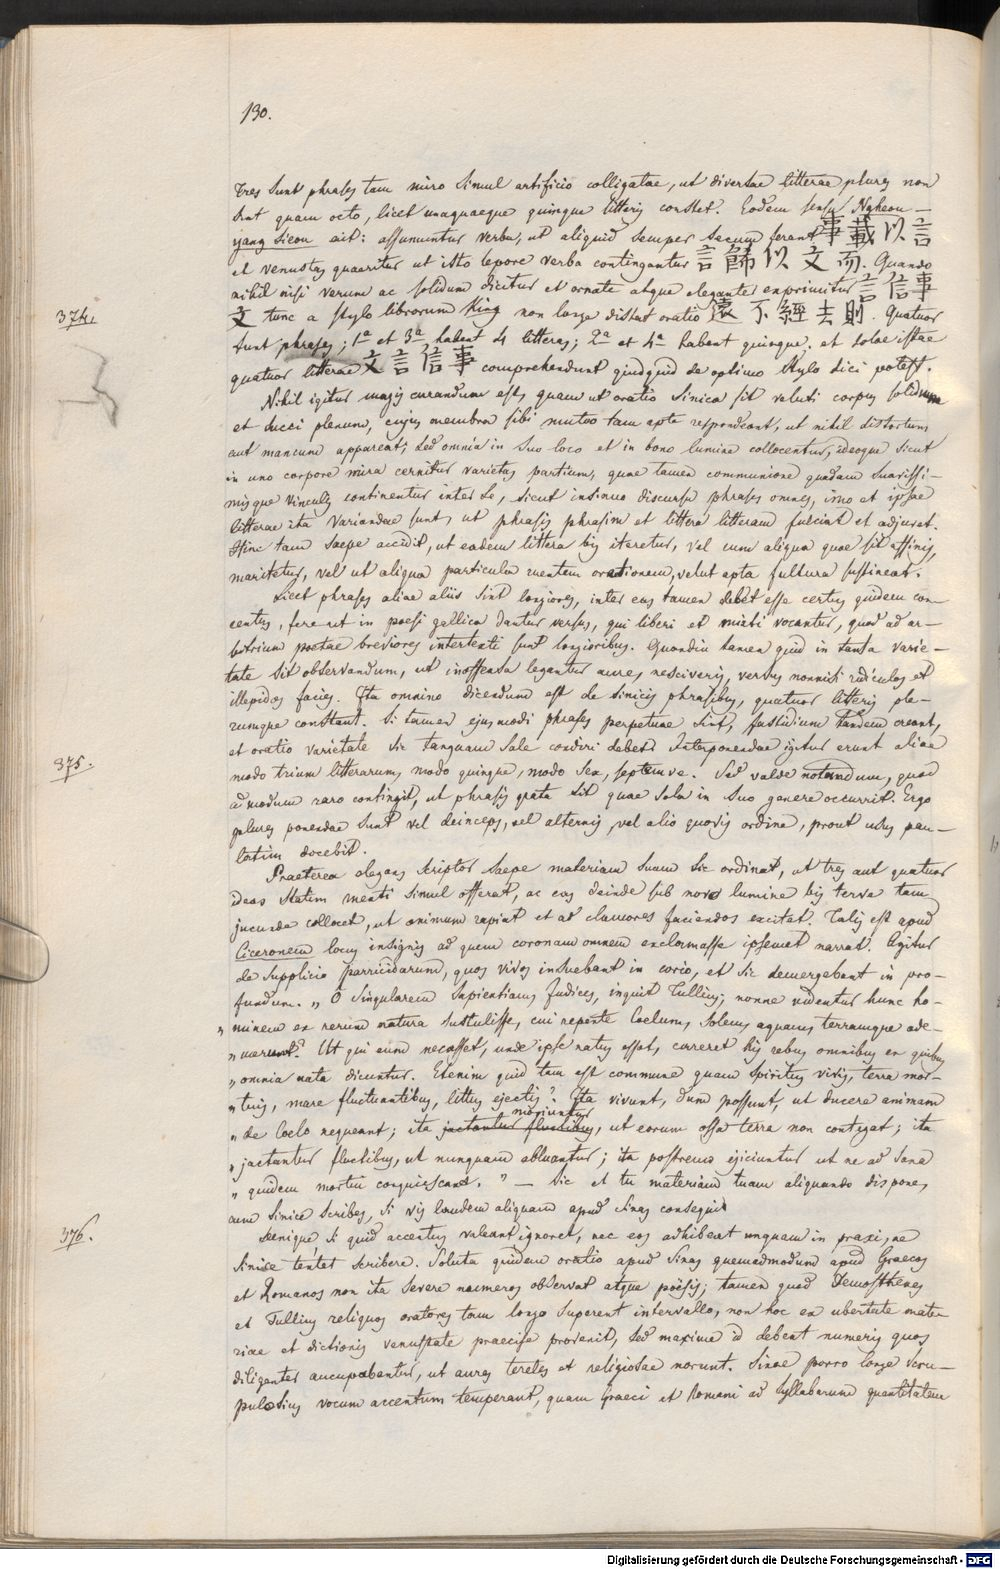 130.
tres sunt phrases tam miro simul artificio colligatae, ut diversae litterae plures non
sint quam octo, licet unaquaeque quinque litteris constet. Eodem sensu Ngheou-
yang sieou ait: assumuntur verba, ut aliquid semper secum ferant 事載以言
et venustas quaeritur ut isto lepore verba contingantur 言飾以文而. Quando
nihil nisi verum ac solidum dicitur et ornate atque eleganter exprimitur 言信事
文 tunc a stylo librorum King non longe distat oratio 遠不經去則. Quatuor
374.
sunt phrases; 1a et 3a habent 4 litteras; 2a et 4a habent quinque; et solae istae
quatuor litterae 文言信事 comprehendunt quidquid de optimo stylo dici potest.
Nihil igitur magis curandum est, quam ut oratio Sinica sit veluti corpus solidum
et succi plenum, cujus membra sibi mutuo tam apte respondeant, ut nihil distortum
aut mancum appareat; sed omnia in suo loco et in bono lumine collocentur, ideoque sicut
in uno corpore mira cernitur varietas partium, quae tamen communione quadam suavissi-
misque vinculis continentur inter se, sicut in sinuo discursu phrases omnes, imo et ipsae
litterae ita variandae sunt, ut phrasis phrasim et littera litteram fulciat et adjuvet.
Hinc tam saepe accidit, ut eadem littera bis iteretur, vel cum aliqua quae sit affinis,
maritetur, vel ut aliqua particula mentem orationem, velut apta fultura sustineat.
Licet phrases aliae aliis sint longiores, inter eas tamen debet esse certus quidem con-
centus, fere ut in poesi gallica dantur versus, qui liberi et mixti vocantur, quod ad ar-
bitrium poetae breviores intertexti sunt longioribus. Quamdiu tamen quid in tanta varie-
tate sit observandum, ut inoffensa legantur aure, nesciveris, versus nonnisi ridiculos et
illepidos facies. Ita omnino dicendum est de sinicis phrasibus, quatuor litteris ple-
rumque constant. Si tamen ejusmodi phrases perpetuae sint, fastidium tandem creant,
et oratio varietate sic tanquam sale condiri debet. Interponendae igitur erunt aliae
375.
modo trium litterarum, modo quinque, modo sex, septemve. Sed valde notandum, quod
admodum raro contingit, ut phrasis grata sit quae sola in suo genere occurrit. Ergo
plures ponendae sunt vel deinceps, vel alternis, vel alio quovis ordine, prout usus pau-
latim docebit.
Praeterea elegans scriptor saepe materiam suam sic ordinat, ut tres aut quatuor
ideas statim menti simul offerat, ac eas deinde sub novo lumine bis terva tam
jucunde collocet, ut animum rapiat et ad clamores faciendos excitet. Talis est apud
Ciceronem locus insignis ad quem coronam omnem exclamasse ipsemet narrat. Agitur
de supplicio parricidarum, quos vivos insuebant in corio, et sic demergebant in pro-
fundum. „O singularem sapientiam Judices, inquit Tullius; nonne videntur hunc ho-
„minem ex rerum natura sustulisse, cui repente Coelum, Solem, aquam, terramque ade-
„marunt? Ut qui eum necasset, unde ipse natus esset, careret his rebus omnibus ex quibus
„omnia nata dicuntur. Etenim quid tam est commune quam spiritus vivis, terra mor-
„tuis, mare fluctuantibus, littus ejectis? Ita vivunt, dum possunt, ut ducere animam
moriuntur
„de Coelo nequeant; ita jactantur fluctibus, ut eorum ossa terra non contegat; ita
„jactantur fluctibus, ut nunquam abluantur; ita postremo ejiciuntur ut ne ad saxa
„quidem mortui conquiescant." — Sic et tu materiam tuam aliquando dispones,
376.
cum Sinice scribes, si vis laudem aliquam apud Sinas consequi
Denique, si quid accentus valeant ignoret, nec eos adhibeat unquam in praxi, ne
sinice tentet scribere. Soluta quidem oratio apud Sinas quemadmodum apud Graecos
et Romanos non ita severe numeros observat atque poësis; tamen quod Demosthenes
et Tullius reliquos oratores tam longo superent intervallo, non hoc ex ubertate mate-
riae et dictionis venustate praecise provenit, sed maxime id debent numeris quos
diligenter aucupabantur, ut aures teretes et religiosae norunt. Sinae porro longe scru-
pulosius vocum accentum temperant, quam Graeci et Romani ad syllabarum quantitatem
Digitalisierung gefördert durch die Deutsche Forschungsgemeinschaft - DFG